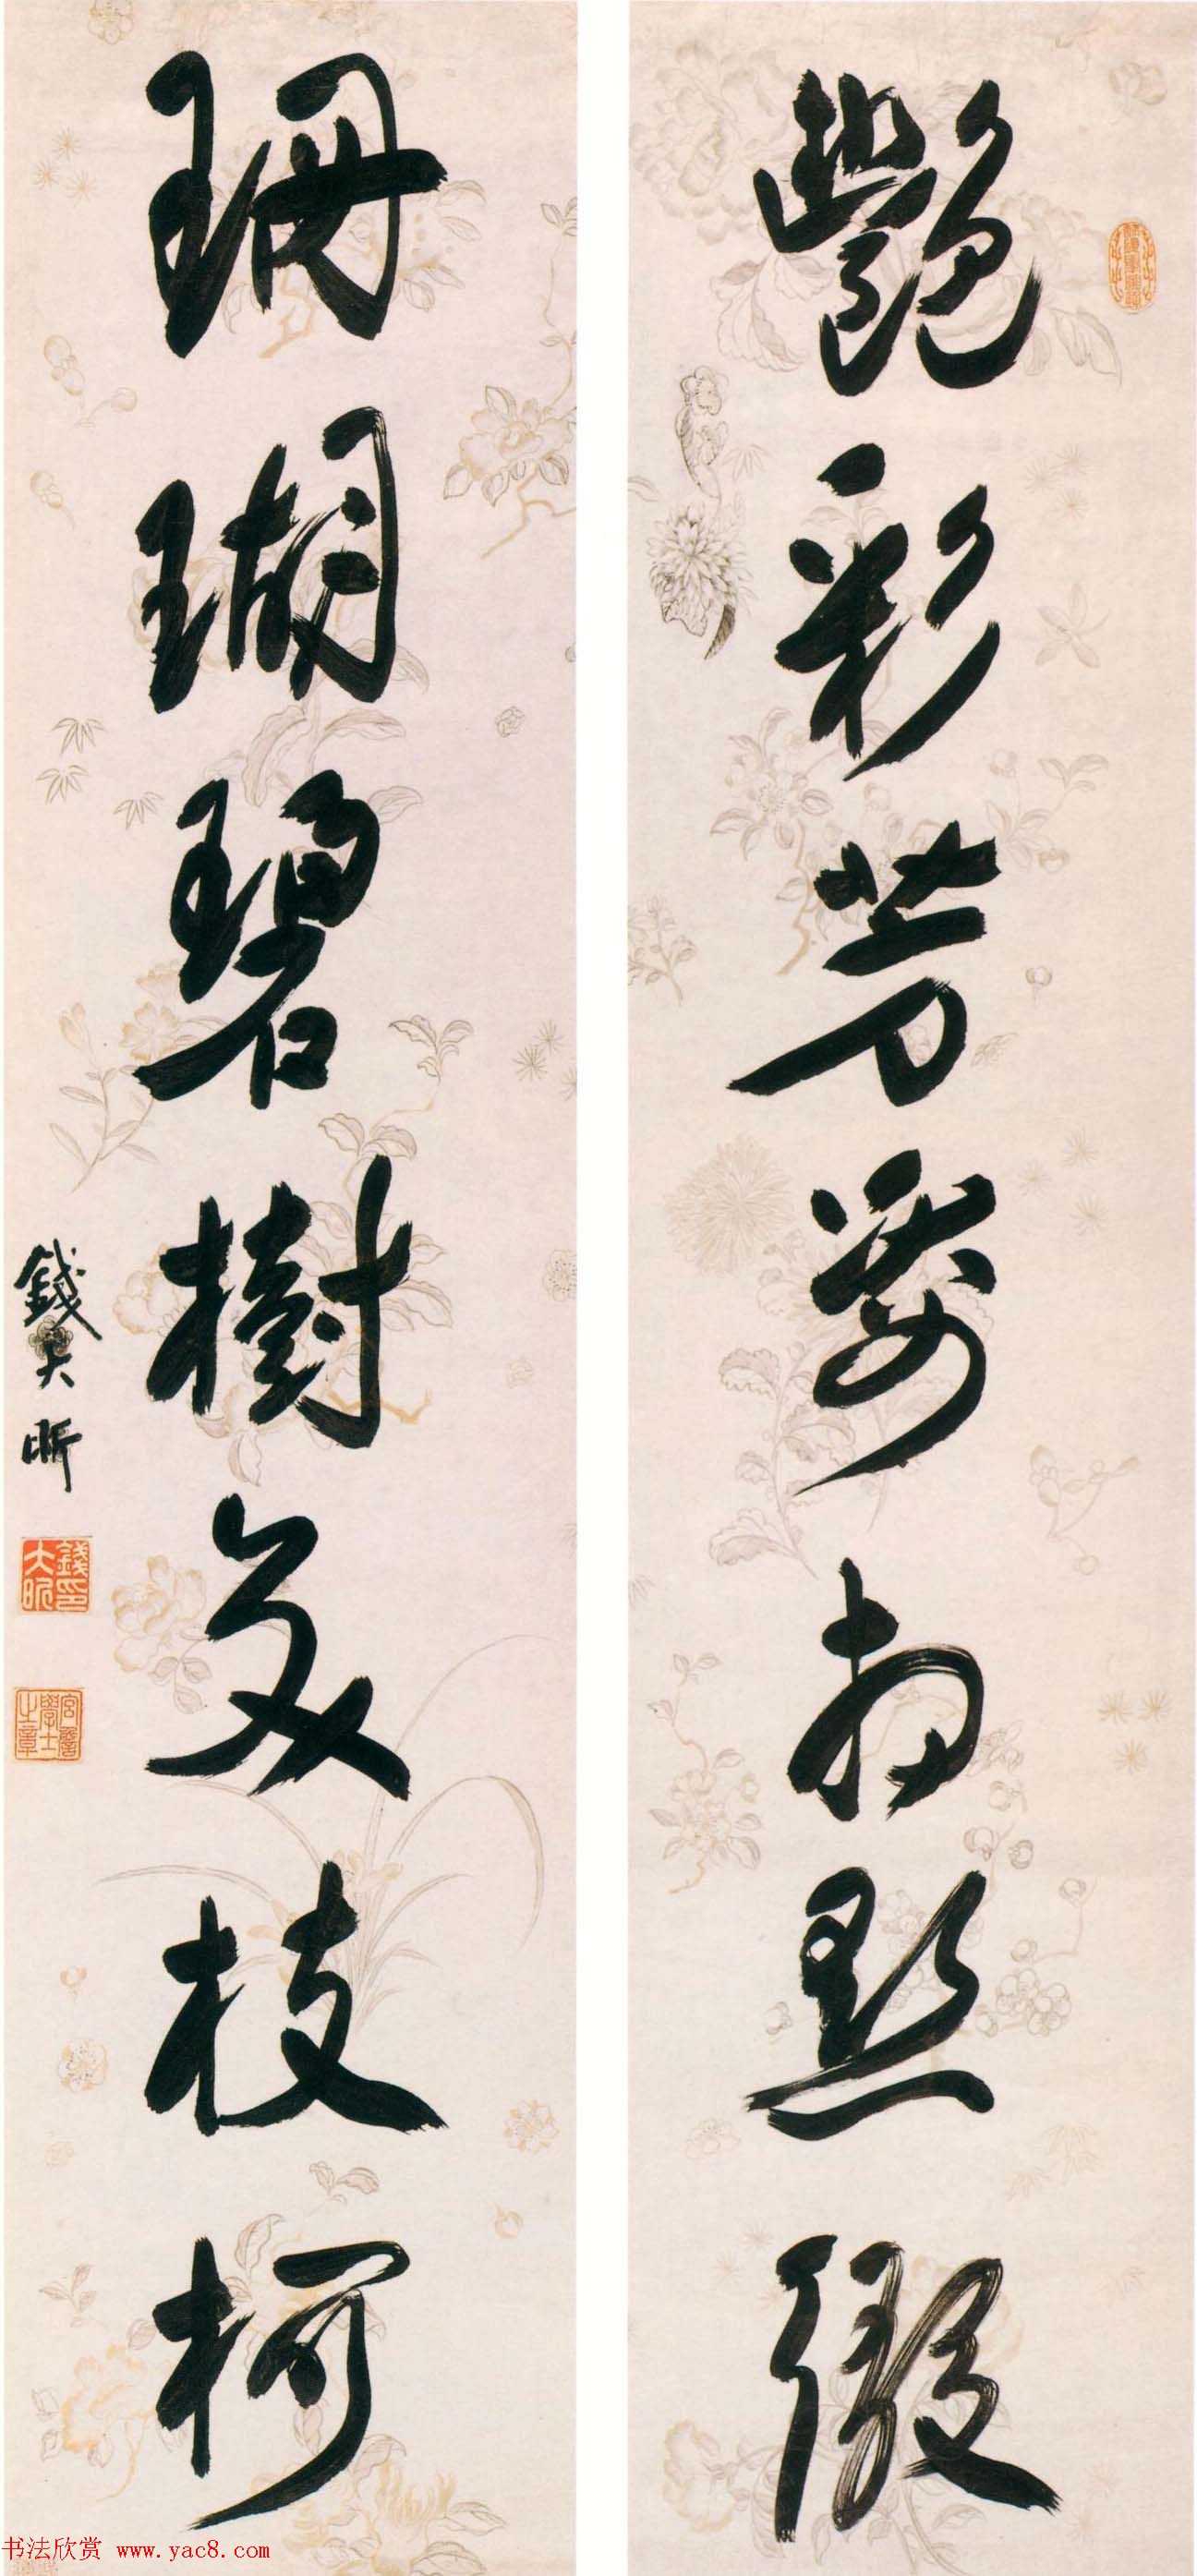 艷彩芳姿相點綴
珊瑚碧樹交枝柯
錢大昕
錢大昕印
宮詹學士之章
书法欣赏 www.yac8.com